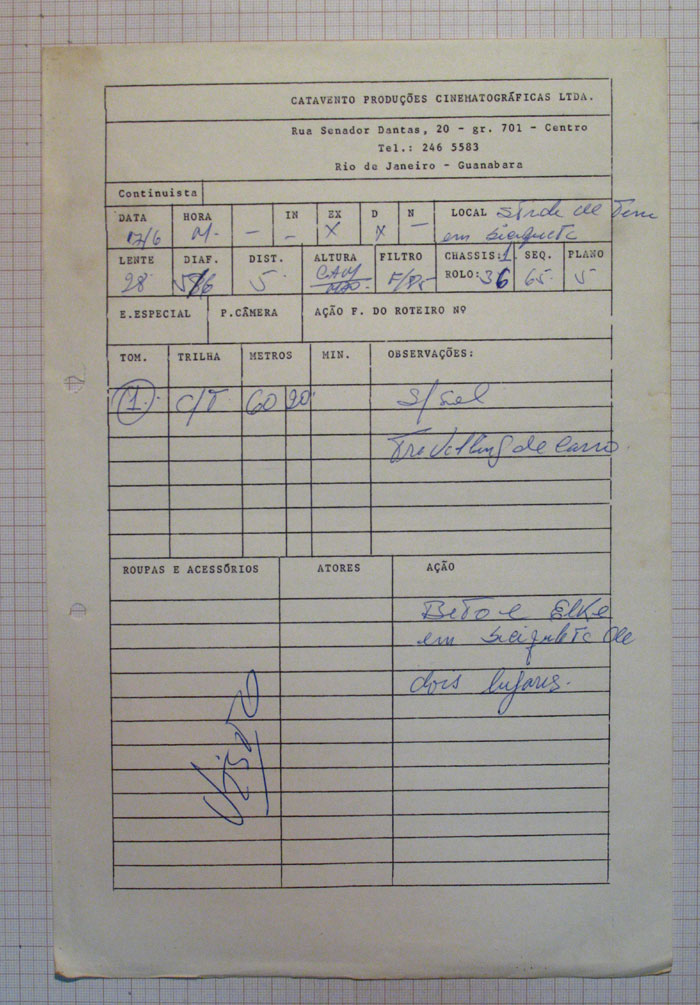 CATAVENTO PRODUÇÕES CINEMATOGRÁFICAS LTDA.
Rua Senador Dantas, 20 - gr. 701 - Centro
Tel.: 246 5583
Rio de Janeiro - Guanabara
Continuista
DATA HORA IN EX D N LOCAL
17/6 M. - - X X - de Terra
em
LENTE DIAF. DIST. ALTURA FILTRO CHASSIS:1 SEQ. PLANO
28 5 CAM/MAO F/85 ROLO:36 65 5
E.ESPECIAL P.CÂMERA AÇÃO F. DO ROTEIRO Nº
TOM. TRILHA METROS MIN. OBSERVAÇÕES:
1 C/T 60 20 s/sol
Travelling de carro
ROUPAS E ACESSÓRIOS ATORES AÇÃO
Beto e Elke
em bicicleta de
dois lugares.
Visto